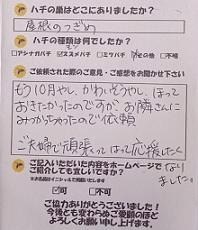 ハチの巣はどこにありましたか？
屋根のつぎめ
ハチの種類は何でしたか？
アシナガバチ スズメバチ ミツバチ その他 不明
ご依頼された際のご意見・ご感想をお聞かせ下さい
もう10月やし、かわいそうやし、ほって
おきたかったのですが、お隣さんに
みつかっちゃったので依頼
ご夫婦で頑張ってはって応援したく
なりました。
ご記入いただいた内容をホームページで
ご紹介しても宜しいですか？
可 不可
ご協力ありがとうございました！
今後とも変わらぬご愛顧のほど
よろしくお願い申し上げます。